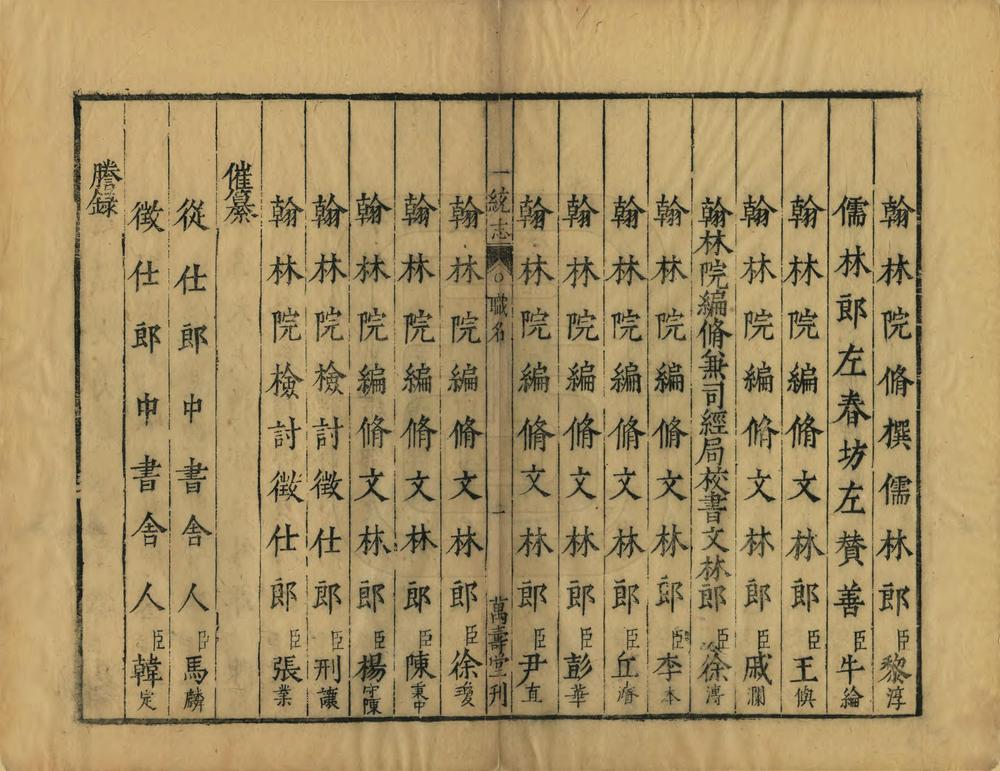 翰林院脩撰儒林郎臣黎淳
儒林郎左春坊左賛善臣牛綸
翰林院編脩文林郎臣王㒜
翰林院編脩文林郎臣戚瀾
翰林院編脩兼司經局校書文林郎臣徐溥
翰林院編脩文林郎臣李本
翰林院編脩文林郎臣丘濬
翰林院編脩文林郎臣彭華
翰林院編脩文林郎臣尹直
一統志
職名
一
萬壽堂刊
翰林院編脩文林郎臣徐瓊
翰林院編脩文林郎臣陳秉中
翰林院編脩文林郎臣楊
翰林院檢討徵仕郎臣刑讓
翰林院檢討徵仕郎臣張業
催纂
從仕郎中書舍人臣馬麟
徵仕郎中書舍人臣韓定
謄録